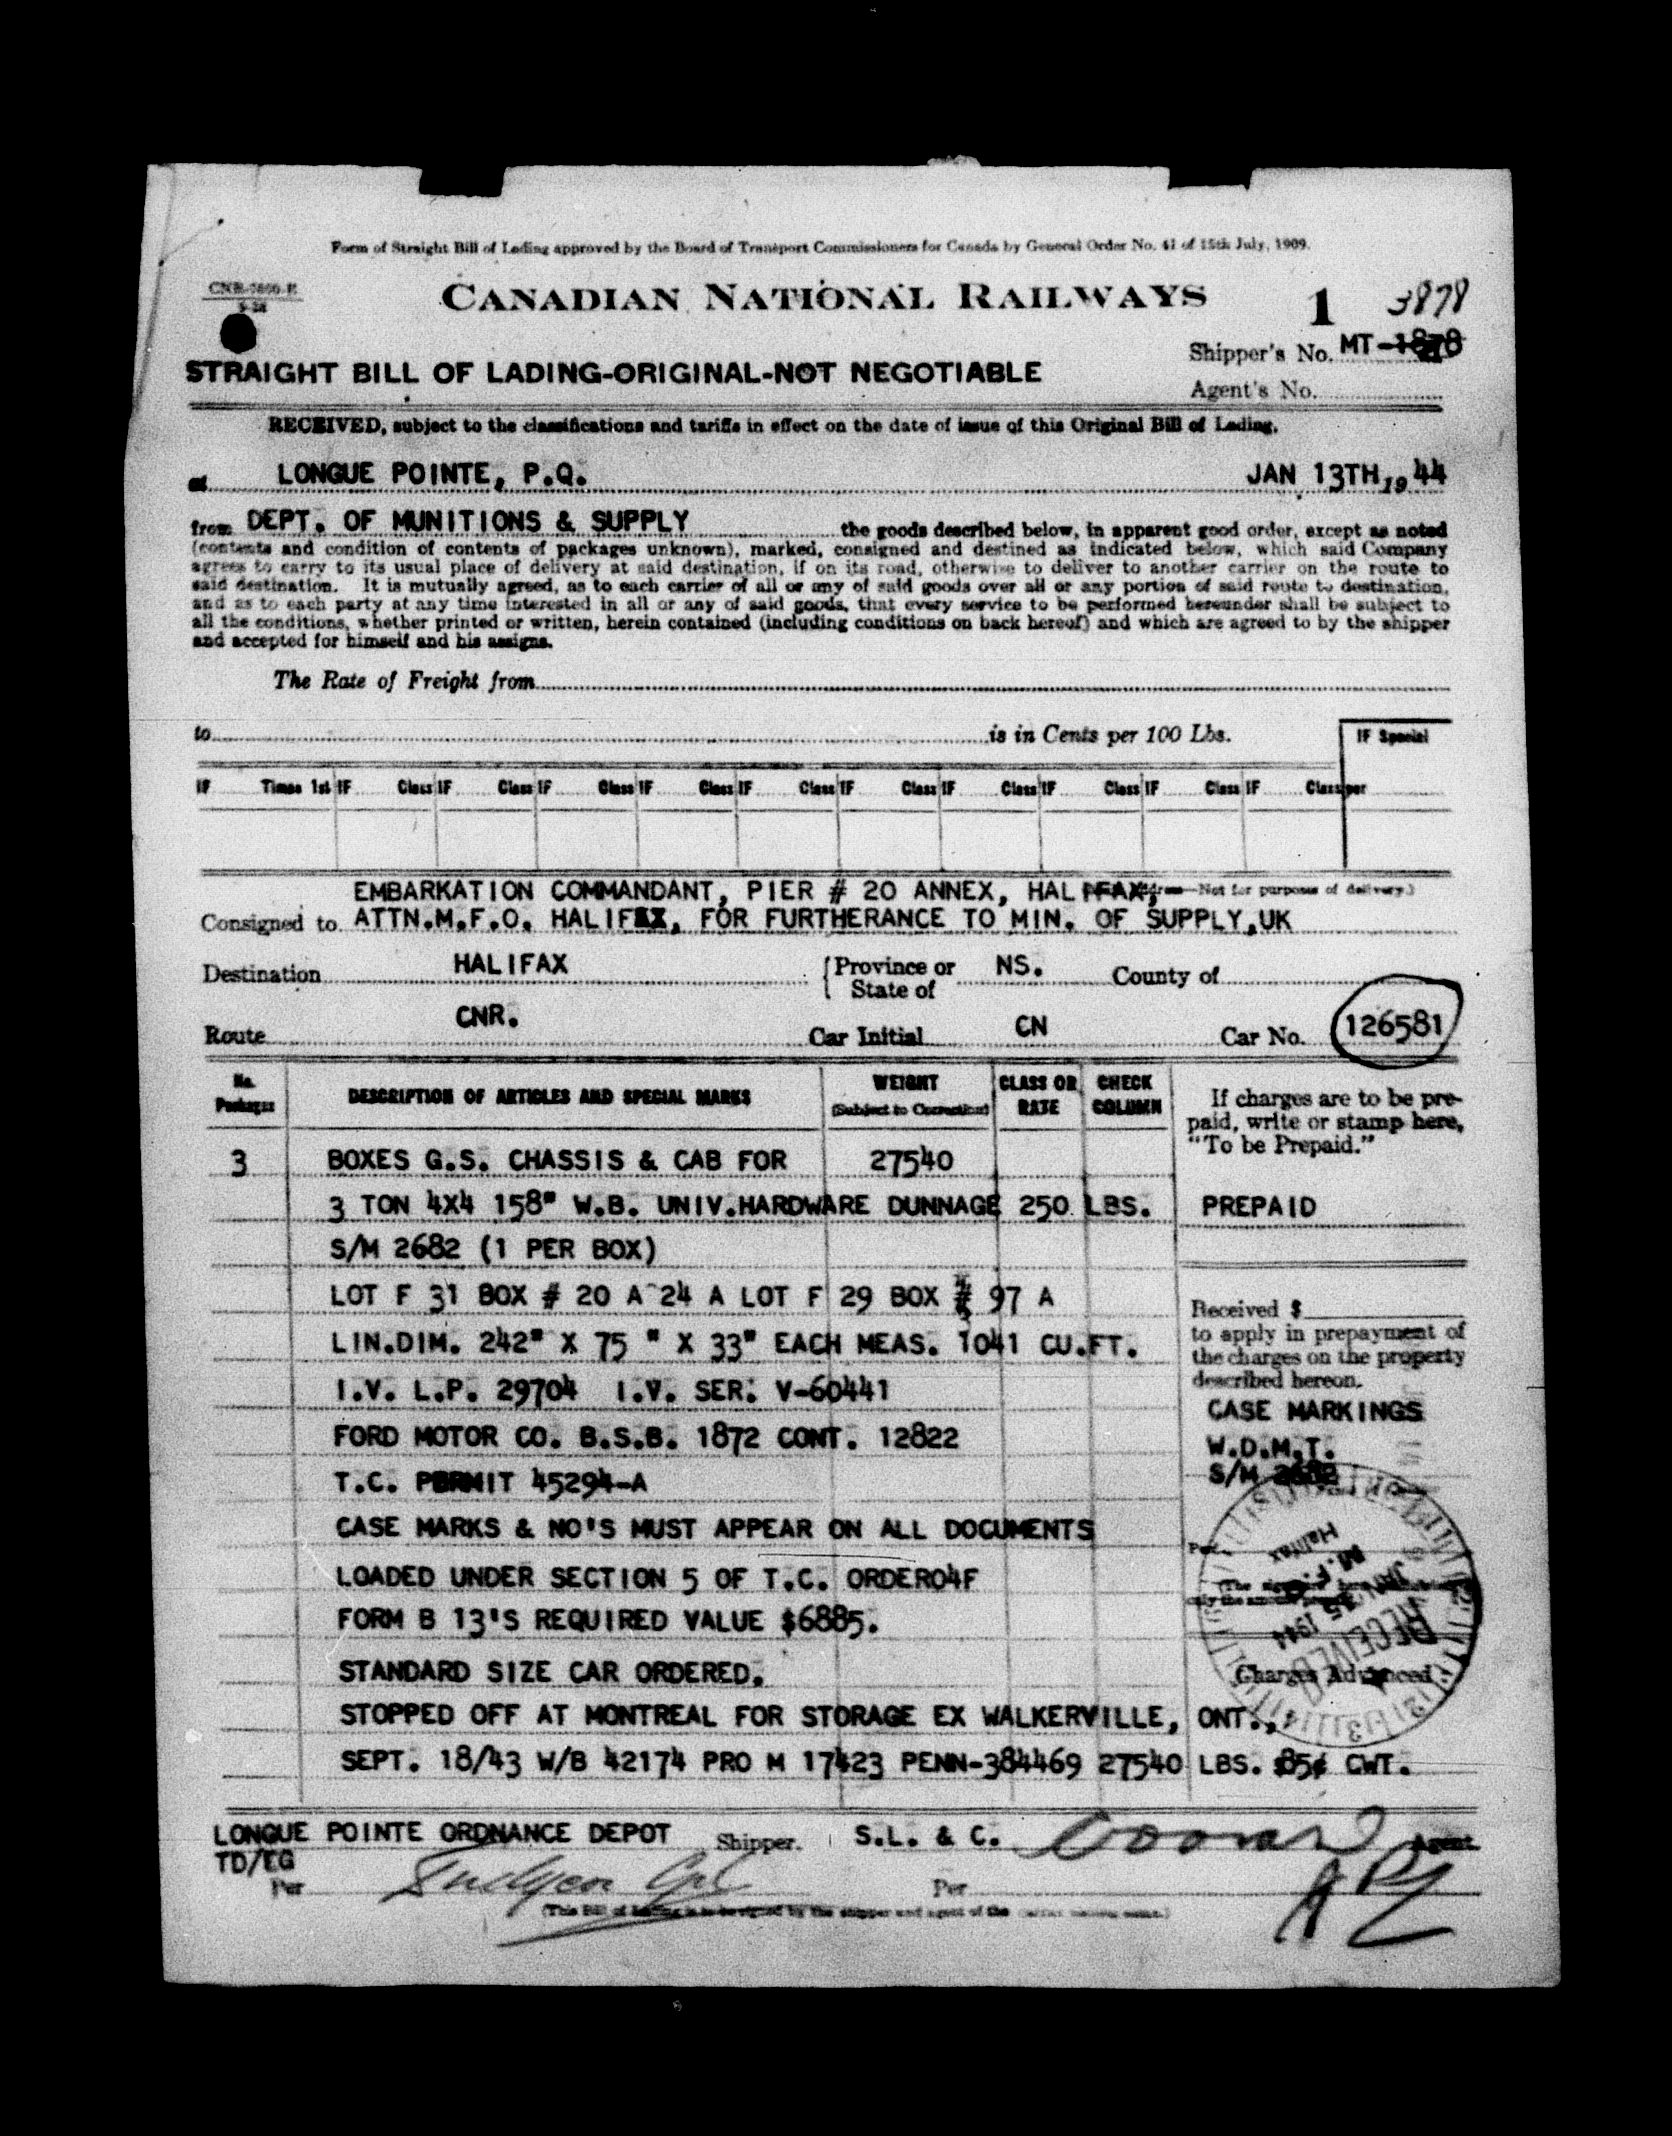 Form of Straight Bill of Lading approved by the Board of Transport Commissioners for Canada by General Order No. 41 of 15th July, 1909.
CANADIAN NATIONAL RAILWAYS
1 3878
Shipper's No. MT-1878
STRAIGHT BILL OF LADING-ORIGINAL-NOT NEGOTIABLE
Agent's No.
RECEIVED, subject to the classifications and tariffs in effect on the date of issue of this Original Bill of Lading,
at LONGUE POINTE, P.Q. JAN 13TH, 19 44
from DEPT. OF MUNITIONS & SUPPLY the goods described below, in apparent good order, except as noted
(contents and condition of contents of packages unknown), marked, consigned and destined as indicated below, which said Company
agrees to carry to its usual place of delivery at said destination, if on its road, otherwise to deliver to another carrier on the route to
said destination. It is mutually agreed, as to each carrier of all or any of said goods over all or any portion of said route to destination,
and as to each party at any time interested in all or any of said goods, that every service to be performed hereunder shall be subject to
all the conditions, whether printed or written, herein contained (including conditions on back hereof) and which are agreed to by the shipper
and accepted for himself and his assigns.
The Rate of Freight from
to is in Cents per 100 Lbs.
IF Special
IF Times 1st IF Class IF Class IF Class IF Class IF Class IF Class IF Class IF Class IF Class IF Class per
EMBARKATION COMMANDANT, PIER # 20 ANNEX, HALIFAX, —Not for purposes of delivery.)
Consigned to ATTN.M.F.O. HALIFAX, FOR FURTHERANCE TO MIN. OF SUPPLY,UK
Destination HALIFAX {Province or State of NS. County of
Route CNR. Car Initial CN Car No. 126581
No. Packages DESCRIPTION OF ARTICLES AND SPECIAL MARKS WEIGHT (Subject to Correction) CLASS OR RATE CHECK COLUMN
If charges are to be pre-
paid, write or stamp here,
"To be Prepaid."
3 BOXES G.S. CHASSIS & CAB FOR 27540
3 TON 4X4 158" W.B. UNIV.HARDWARE DUNNAGE 250 LBS. PREPAID
S/M 2682 (1 PER BOX)
LOT F 31 BOX # 20 A 24 A LOT F 29 BOX # 97 A
Received $
to apply in prepayment of
the charges on the property
described hereon.
LIN.DIM. 242" X 75 " X 33" EACH MEAS. 1041 CU.FT.
I.V. L.P. 29704 I.V. SER. V-60441
CASE MARKINGS
FORD MOTOR CO. B.S.B. 1872 CONT. 12822
W.D.M.T.
S/M 2682
T.C. PERMIT 45294-A
CASE MARKS & NO'S MUST APPEAR ON ALL DOCUMENTS
Per
Halifax
JAN 15 1944
RECEIVED
LOADED UNDER SECTION 5 OF T.C. ORDER04F
FORM B 13'S REQUIRED VALUE $6885.
STANDARD SIZE CAR ORDERED.
Charges Advanced
STOPPED OFF AT MONTREAL FOR STORAGE EX WALKERVILLE, ONT.,
SEPT. 18/43 W/B 42174 PRO M 17423 PENN-384469 27540 LBS. $85¢ CWT.
LONGUE POINTE ORDNANCE DEPOT Shipper. S.L. & C. Agent
TD/EG
Per Per